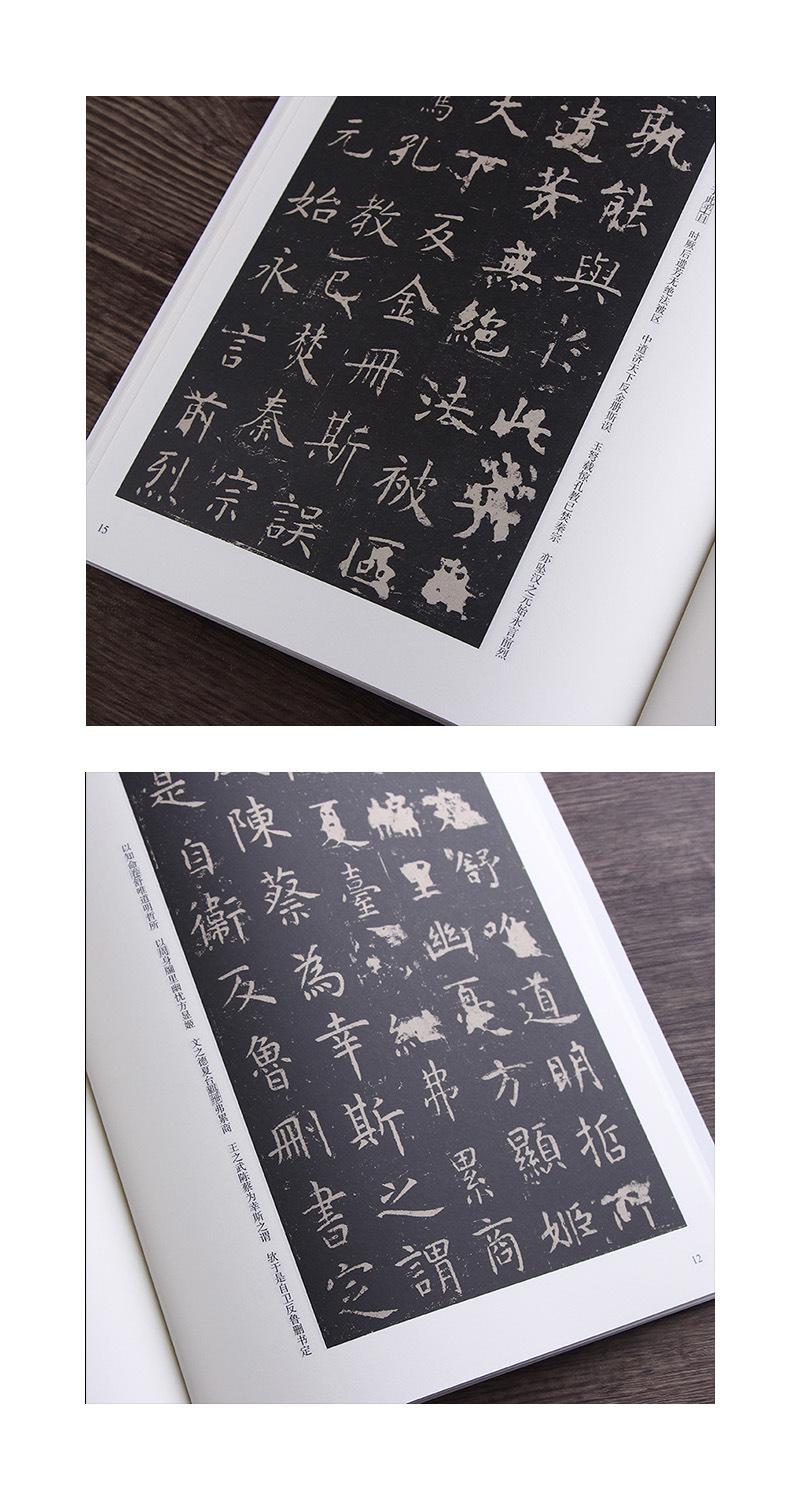 孰能與於此
遺芳無絕法被區
天下反金冊斯誤
焉孔教已焚秦宗
元始永言前烈
于此者且 时厥后遗芳无绝法被区 中道济天下反金册斯误 玉弩载惊孔教已焚秦宗 亦坠汉之元始永言前烈
15
舒唯道明哲所
里幽憂方顯姬
夏臺 弗累商
陳蔡為幸斯之謂
是自衞反魯刪書定
以知命卷舒唯道明哲所 以周身牖里幽忧方显姬 文之德夏台羁绁弗累商 王之武陈蔡为幸斯之谓 欤于是自卫反鲁删书定
12